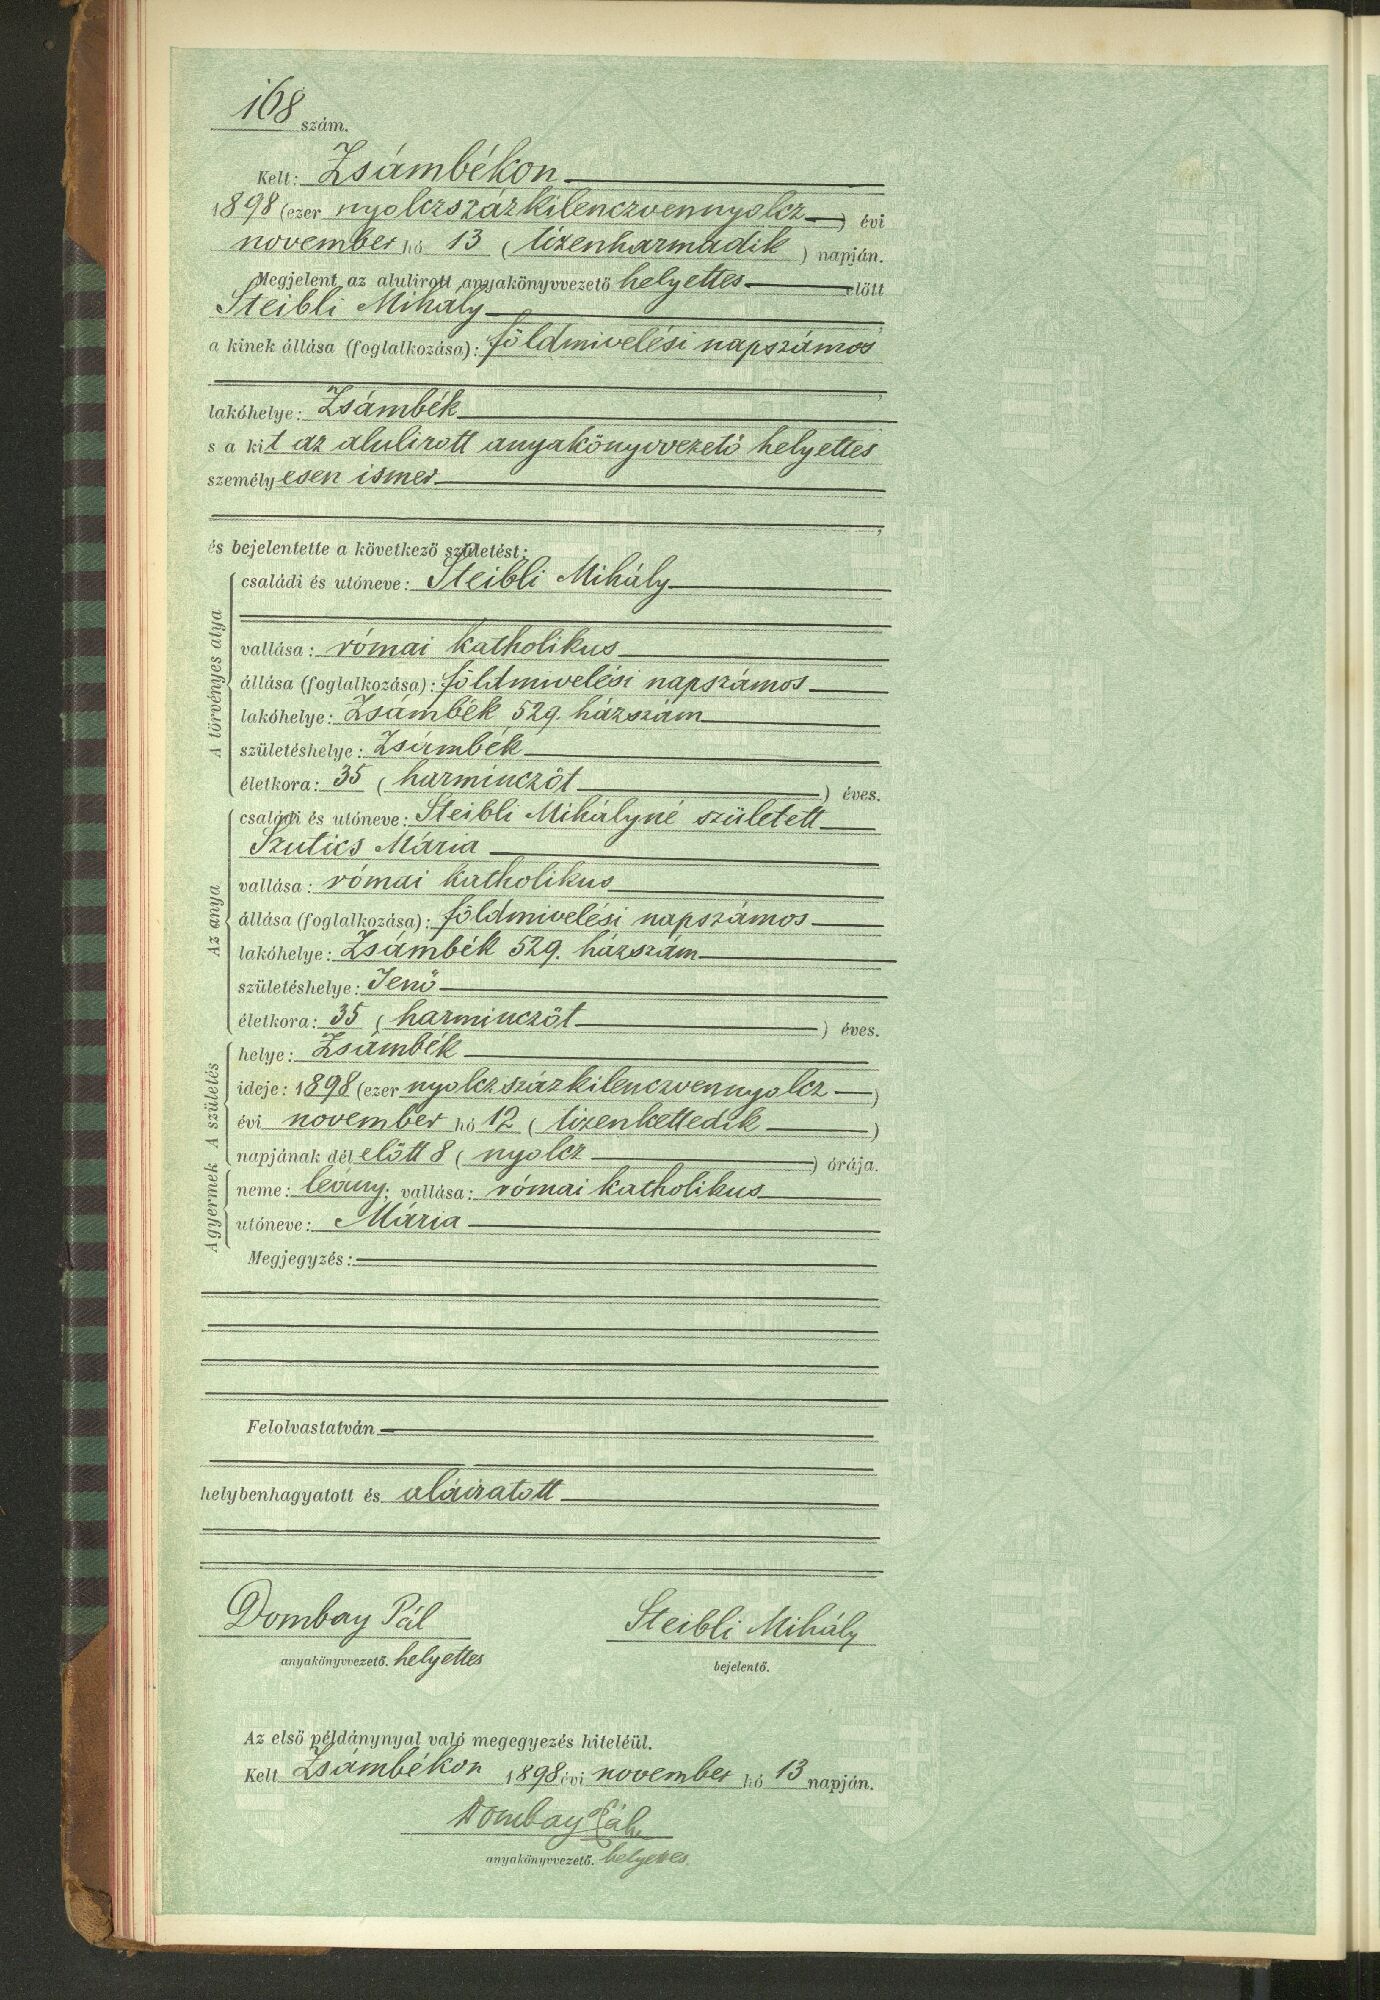 168 szám.
Kelt: Zsámbékon
1898 (ezer nyolczszázkilenczvennyolcz) évi
november hó 13 (tizenharmadik) napján.
Megjelent az alulirott anyakönyvvezető helyettes előtt
Steibli Mihály,
a kinek állása (foglalkozása): földmivelési napszámos
,
lakóhelye: Zsámbék
s a kit az alulirott anyakönyvvezető helyettes
személyesen ismer
,
és bejelentette a következő születést:
A törvényes atya
családi és utóneve: Steibli Mihály
vallása: római katholikus
állása (foglalkozása): földmivelési napszámos
lakóhelye: Zsámbék 529. házszám
születéshelye: Zsámbék
életkora: 35 (harminczöt) éves.
Az anya
családi és utóneve: Steibli Mihályné született
Szutics Mária
vallása: római katholikus
állása (foglalkozása): földmivelési napszámos
lakóhelye: Zsámbék 529. házszám
születéshelye: Jenő
életkora: 35 (harminczöt) éves.
A születés
helye: Zsámbék
ideje: 1898 (ezer nyolczszázkilenczvennyolcz)
évi november hó 12 (tizenkettedik)
napjának dél előtt 8 (nyolcz) órája.
A gyermek
neme: leány; vallása: római katholikus
utóneve: Mária
Megjegyzés:
Felolvastatván
helybenhagyatott és aláiratott
Dombay Pál Steibli Mihály
anyakönyvvezető. helyettes bejelentő.
Az első példánynyal való megegyezés hiteléül.
Kelt Zsámbékon 1898 évi november hó 13 napján.
Dombay Pál
anyakönyvvezető. helyettes.